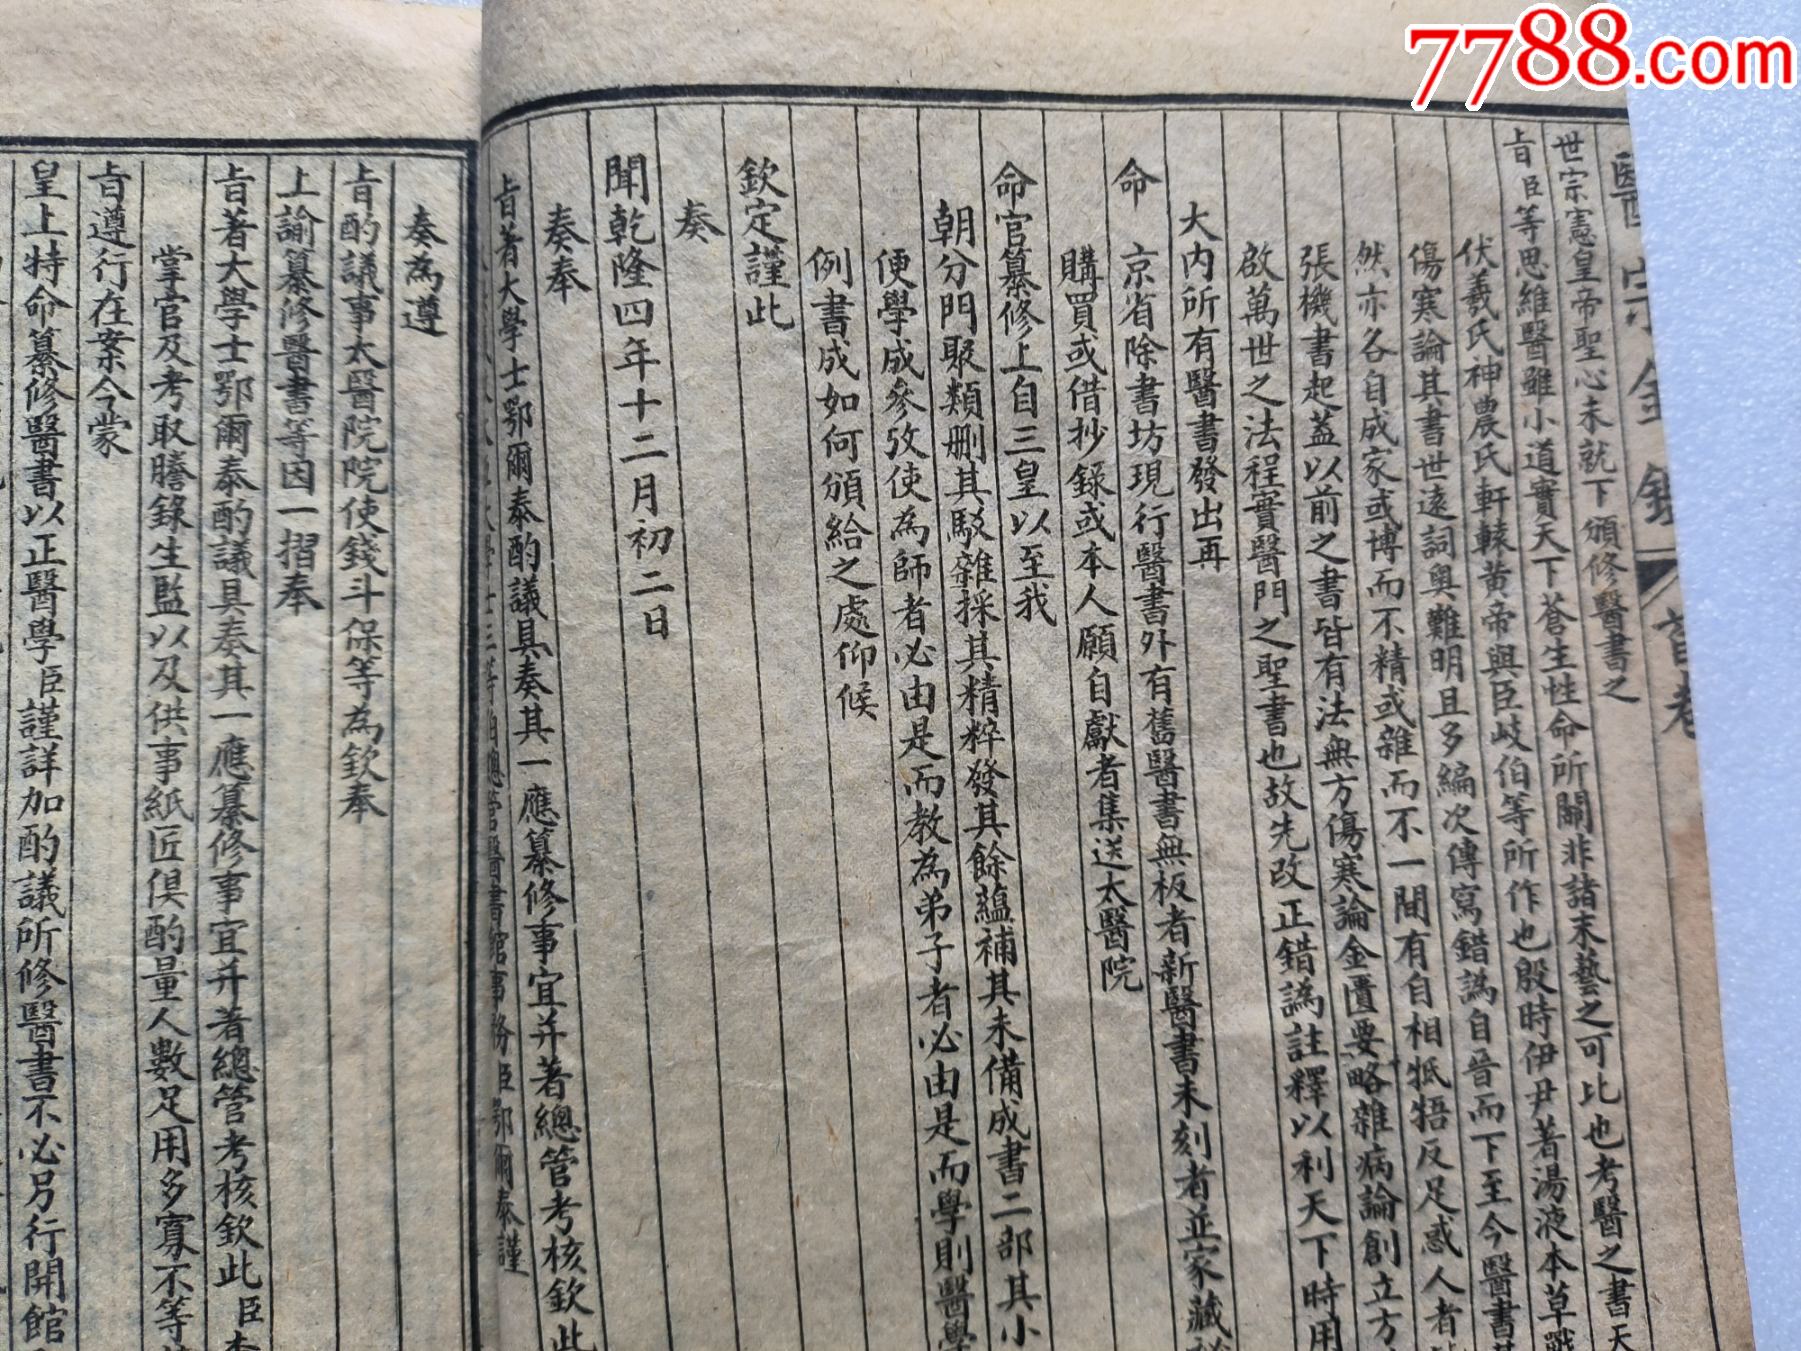 7788.com
醫宗金鑑 首卷
世宗憲皇帝聖心未就下頒修醫書之
旨臣等思維醫雖小道實天下蒼生性命所關非諸末藝之可比也考醫之書天
伏羲氏神農氏軒轅黃帝與臣岐伯等所作也殷時伊尹著湯液本草戰
傷寒論其書世遠詞奧難明且多編次傳寫錯譌自晉而下至今醫書
然亦各自成家或博而不精或雜而不一間有自相牴牾反足惑人者
張機書起蓋以前之書皆有法無方傷寒論金匱要略雜病論創立方
啟萬世之法程實醫門之聖書也故先改正錯譌註釋以利天下時用
大內所有醫書發出再
命 京省除書坊現行醫書外有舊醫書無板者新醫書未刻者並家藏祕
購買或借抄錄或本人願自獻者集送太醫院
命官纂修上自三皇以至我
朝分門聚類刪其駁雜採其精粹發其餘蘊補其未備成書二部其小
便學成參攷使為師者必由是而教為弟子者必由是而學則醫學
例書成如何頒給之處仰候
欽定謹此
奏
聞乾隆四年十二月初二日
奏奉
旨著大學士鄂爾泰酌議具奏其一應纂修事宜并著總管考核欽此
大學士三等伯總管醫書館事務臣鄂爾泰謹
奏為遵
旨酌議事太醫院院使錢斗保等為欽奉
上諭纂修醫書等因一摺奉
旨著大學士鄂爾泰酌議具奏其一應纂修事宜并著總管考核欽此臣
掌官及考取謄錄生監以及供事紙匠俱酌量人數足用多寡不等
旨遵行在案今蒙
皇上特命纂修醫書以正醫學臣謹詳加酌議所修醫書不必另行開館